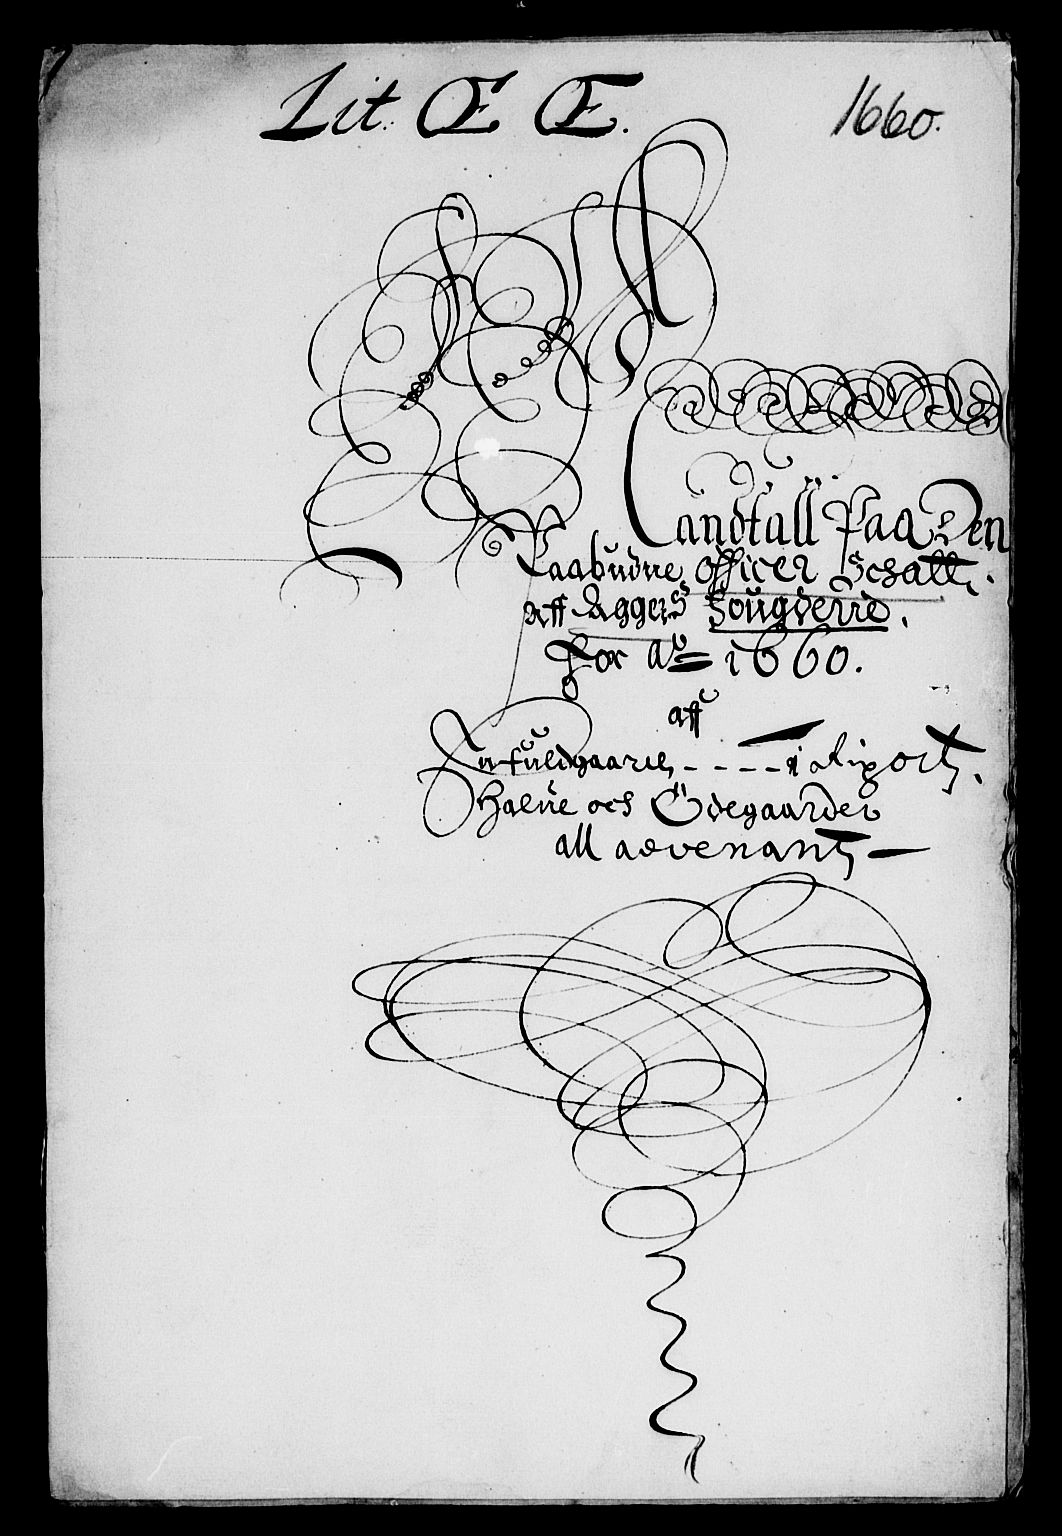 Lit. Œ Œ.
1660.
Mandtall Paa Den
Paabudne officer Schatt.
aff Aggers fougderie.
for Ao 1660.
aff
En fuldgaard - - - - 1 Rixort.
Halue och Ödegaarder
all advenant